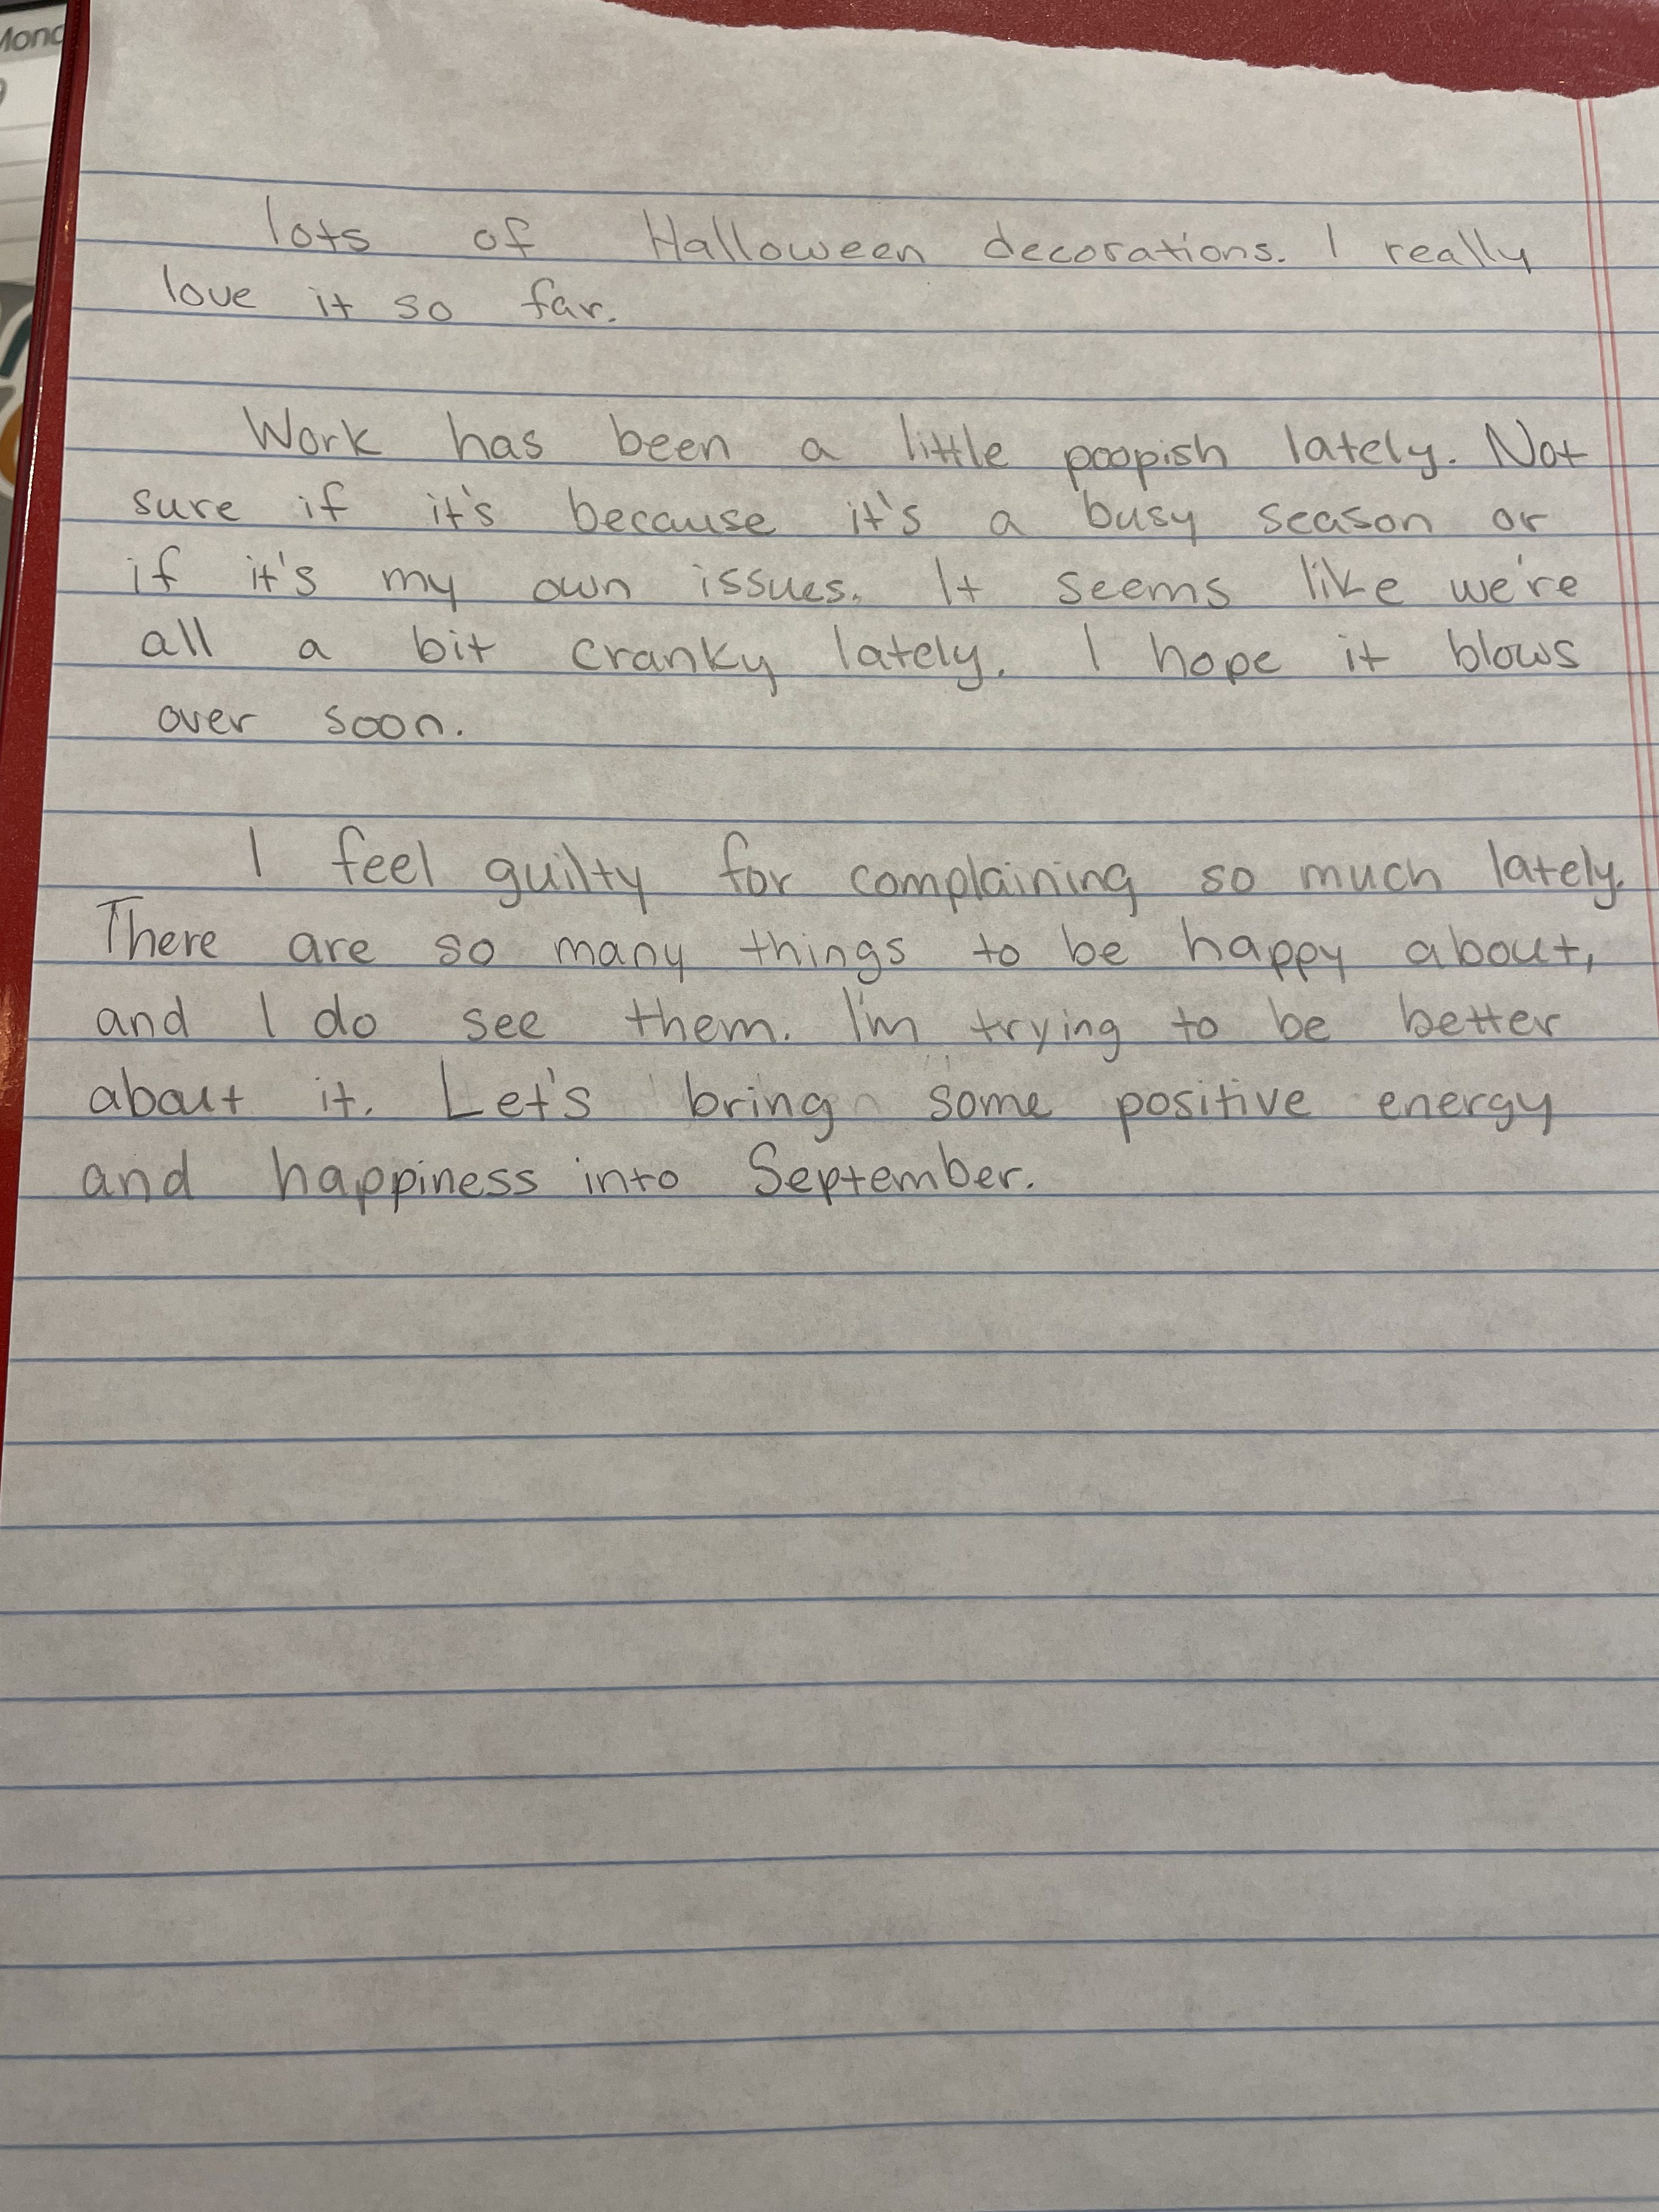 Mond
lots of Halloween decorations. I really
love it so far.
Work has been a little poopish lately. Not
sure if it's because it's a busy season or
if it's my own issues. It seems like we're
all a bit cranky lately. I hope it blows
over soon.
I feel guilty for complaining so much lately.
There are so many things to be happy about,
and I do see them. I'm trying to be better
about it. Let's bring some positive energy
and happiness into September.